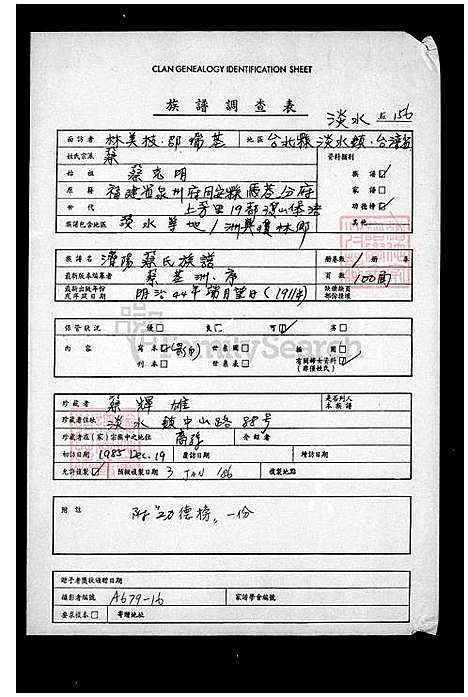 CLAN GENEALOGY IDENTIFICATION SHEET
族譜調查表
淡水 156
面訪者 林美枝·邵端慧 地區 台北縣淡水鎮·台灣省
姓氏宗派 蔡 資料類別
始祖 蔡克明 族譜☑
原籍 福建省泉州府同安縣 分府 家譜□
世代 上芳里19都 功德榜☑
族譜包含地區 淡水等地 其他
族譜名 濟陽蔡氏族譜 冊卷數 1 冊 卷
最新版本編纂者 蔡基洲·序 頁數 100面
最新出版年份或序跋日期 明治44年 月望日(1911年) 缺號缺頁部份損壞
保管狀況 優□ 良□ 可☑ 劣□
內容 寫本☑(影印) 世系圖□ 插圖□
刊本□ 世系表□ 有關婦女資料☑(非僅姓氏)
珍藏者 蔡輝雄 是否列入本族譜
珍藏者住址 淡水鎮中山路88号
珍藏者在(家)宗族中之地位 裔孫 介紹者
初訪日期 1985 Dec.19 覆訪日期 續訪日期
允許複製☑ 預擬複製日期 3 JAN '86 複製地點
附註 附"功德榜"一份
贈予者獎狀頒贈日期
攝影者編號 A679-16 家譜學會編號
要求複本□ 寄贈地址
FamilySearch